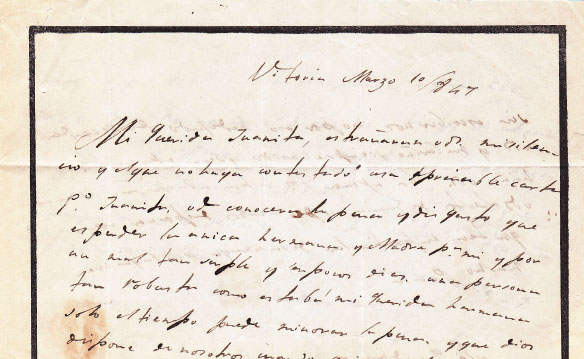 Vitoria Marzo 10/847
Mi Querida Juanita, estrañaran ods. mi silen
cio y el que no haya contestado a su apreciable carta
p.º Juanita, od. conocera la pena y disgusto que
es perder la unica hermana y Madre p.ª mi y por
un mal tan simple y en pocos dias, una persona
tan robusta como estaba mi Querida hermana
solo el tiempo puede minorar la pena, y que dios
dispone de nosotros